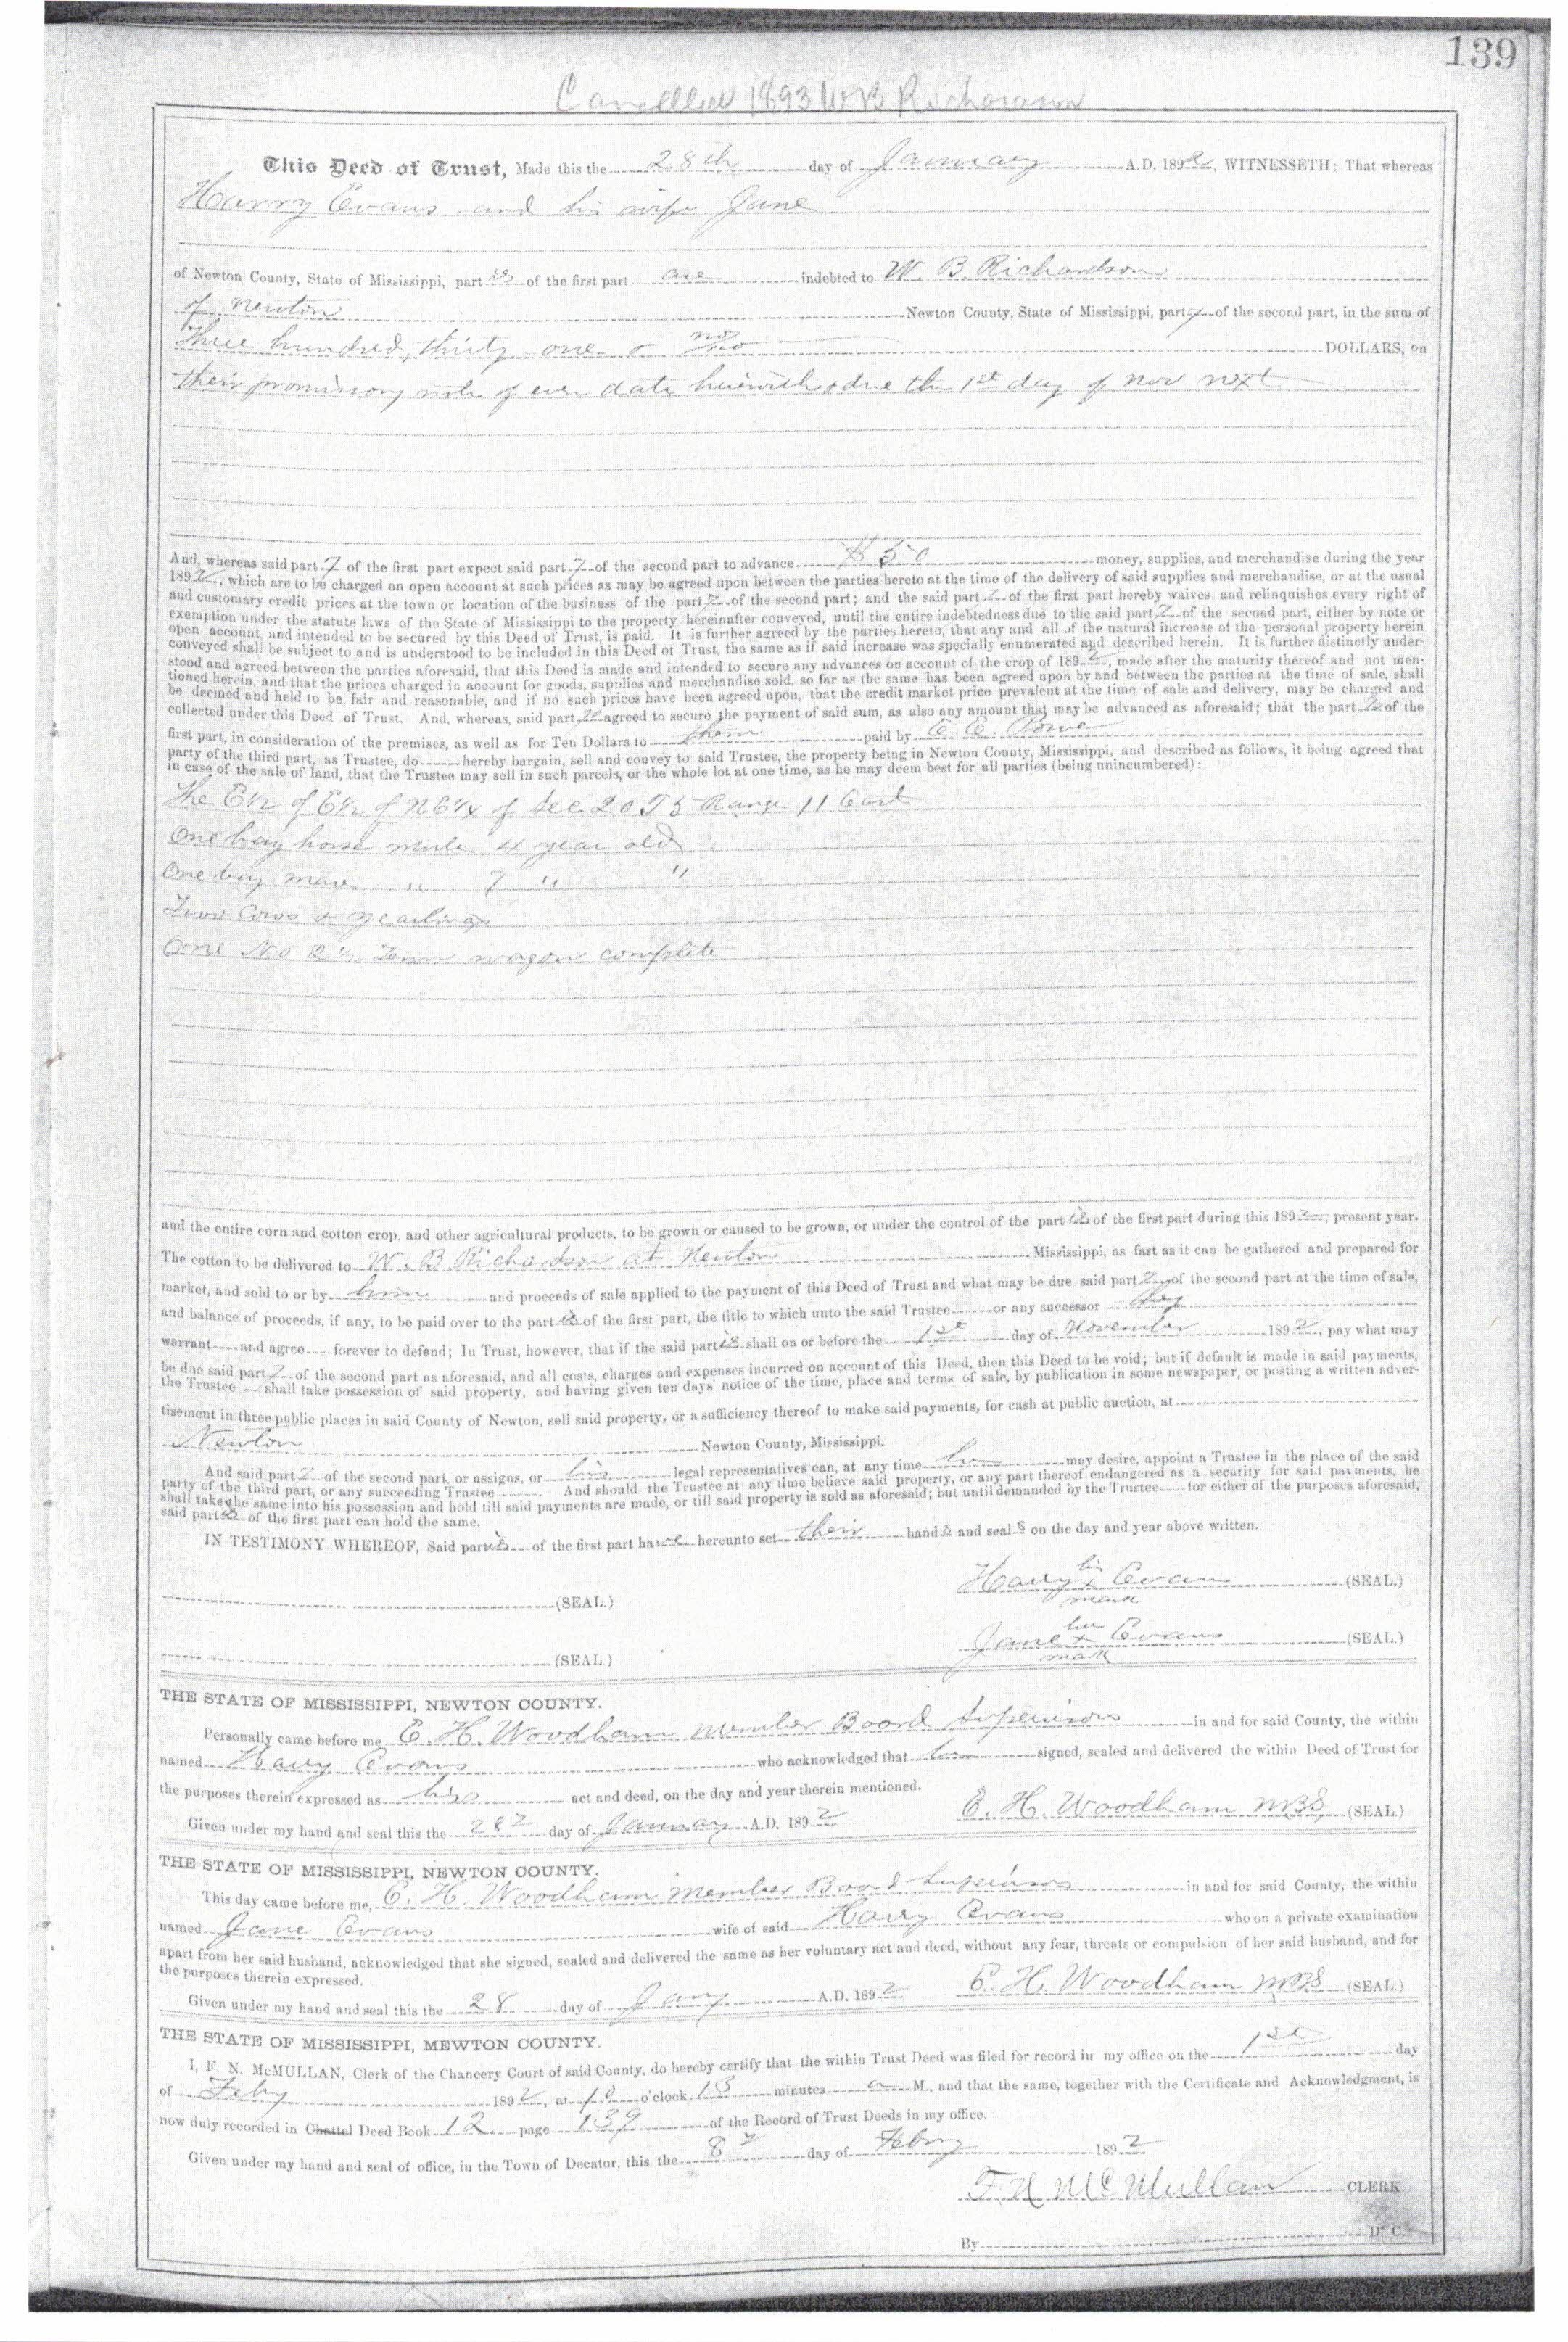 139
Cancelled 1893 W B Richardson
This Deed of Trust, Made this the 28th day of January A.D. 1892, WITNESSETH: That whereas
Harry Evans and his wife Jane
of Newton County, State of Mississippi, part ies of the first part are indebted to W. B. Richardson
of Newton Newton County, State of Mississippi, part y of the second part, in the sum of
Three hundred, thirty one & no/100 DOLLARS, on
their promissory note of even date herewith & due the 1st day of Nov next
And, whereas said part y of the first part expect said part y of the second part to advance $50 money, supplies, and merchandise during the year
1892, which are to be charged on open account at such prices as may be agreed upon between the parties hereto at the time of the delivery of said supplies and merchandise, or at the usual
and customary credit prices at the town or location of the business of the part y of the second part; and the said part y of the first part hereby waives and relinquishes every right of
exemption under the statute laws of the State of Mississippi to the property hereinafter conveyed, until the entire indebtedness due to the said part y of the second part, either by note or
open account, and intended to be secured by this Deed of Trust, is paid. It is further agreed by the parties hereto, that any and all of the natural increase of the personal property herein
conveyed shall be subject to and is understood to be included in this Deed of Trust, the same as if said increase was specially enumerated and described herein. It is further distinctly under-
stood and agreed between the parties aforesaid, that this Deed is made and intended to secure any advances on account of the crop of 1892, made after the maturity thereof and not men-
tioned herein, and that the prices charged in account for goods, supplies and merchandise sold, so far as the same has been agreed upon by and between the parties at the time of sale, shall
be deemed and held to be fair and reasonable, and if no such prices have been agreed upon, that the credit market price prevalent at the time of sale and delivery, may be charged and
collected under this Deed of Trust. And, whereas, said part agreed to secure the payment of said sum, as also any amount that may be advanced as aforesaid; that the part of the
first part, in consideration of the premises, as well as for Ten Dollars to them paid by E. E. Powe
party of the third part, as Trustee, do hereby bargain, sell and convey to said Trustee, the property being in Newton County, Mississippi, and described as follows, it being agreed that
in case of the sale of land, that the Trustee may sell in such parcels, or the whole lot at one time, as he may deem best for all parties (being unincumbered):
The E½ of E½ of NE¼ of Sec 20 T5 Range 11 East
One bay horse mule 4 year old
One bay mare " 7 " "
Two Cows & yearlings
One No 2½ Tenn wagon complete
and the entire corn and cotton crop, and other agricultural products, to be grown or caused to be grown, or under the control of the part ies of the first part during this 1892, present year.
The cotton to be delivered to W. B. Richardson at Newton Mississippi, as fast as it can be gathered and prepared for
market, and sold to or by him and proceeds of sale applied to the payment of this Deed of Trust and what may be due said part y of the second part at the time of sale,
and balance of proceeds, if any, to be paid over to the part ies of the first part, the title to which unto the said Trustee or any successor they
warrant and agree forever to defend; In Trust, however, that if the said part ies shall on or before the 1st day of November 1892, pay what may
be due said part y of the second part as aforesaid, and all costs, charges and expenses incurred on account of this Deed, then this Deed to be void; but if default is made in said payments,
the Trustee shall take possession of said property, and having given ten days' notice of the time, place and terms of sale, by publication in some newspaper, or posting a written adver-
tisement in three public places in said County of Newton, sell said property, or a sufficiency thereof to make said payments, for cash at public auction, at
Newton Newton County, Mississippi.
And said part y of the second part, or assigns, or his legal representatives can, at any time he may desire, appoint a Trustee in the place of the said
party of the third part, or any succeeding Trustee. And should the Trustee at any time believe said property, or any part thereof endangered as a security for said payments, he
shall take the same into his possession and hold till said payments are made, or till said property is sold as aforesaid; but until demanded by the Trustee for either of the purposes aforesaid,
said part ies of the first part can hold the same.
IN TESTIMONY WHEREOF, Said part ies of the first part have hereunto set their hand s and seal s on the day and year above written.
Harry his x mark Evans (SEAL.)
(SEAL.)
Jane her x mark Evans (SEAL.)
(SEAL.)
THE STATE OF MISSISSIPPI, NEWTON COUNTY.
Personally came before me E. H. Woodham Member Board Supervisors in and for said County, the within
named Harry Evans who acknowledged that signed, sealed and delivered the within Deed of Trust for
the purposes therein expressed as his act and deed, on the day and year therein mentioned.
Given under my hand and seal this the 28 day of January A.D. 1892 E. H. Woodham MBS, (SEAL.)
THE STATE OF MISSISSIPPI, NEWTON COUNTY.
This day came before me, E. H. Woodham Member Board Supervisors in and for said County, the within
named Jane Evans wife of said Harry Evans who on a private examination
apart from her said husband, acknowledged that she signed, sealed and delivered the same as her voluntary act and deed, without any fear, threats or compulsion of her said husband, and for
the purposes therein expressed.
Given under my hand and seal this the 28 day of Jany A.D. 1892 E. H. Woodham MBS (SEAL.)
THE STATE OF MISSISSIPPI, MEWTON COUNTY.
I, F. N. McMULLAN, Clerk of the Chancery Court of said County, do hereby certify that the within Trust Deed was filed for record in my office on the 1st day
of Feby 1892, at 10 o'clock 13 minutes a M., and that the same, together with the Certificate and Acknowledgment, is
now duly recorded in Chattel Deed Book 12 page 139 of the Record of Trust Deeds in my office.
Given under my hand and seal of office, in the Town of Decatur, this the 8 day of Febry 1892
F N McMullan CLERK
By D. C.